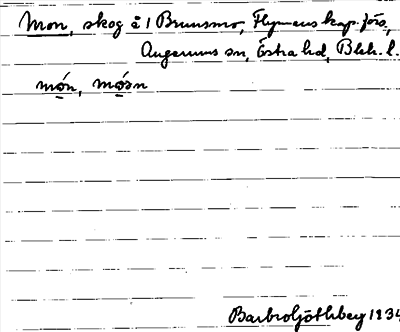 Mon, skog å 1 Brunsmo, Flymens kap. förs.,
Augerums sn, Östra hd, Blek. l.
mó̜n, mó̜sn
Barbro Götheberg 1934